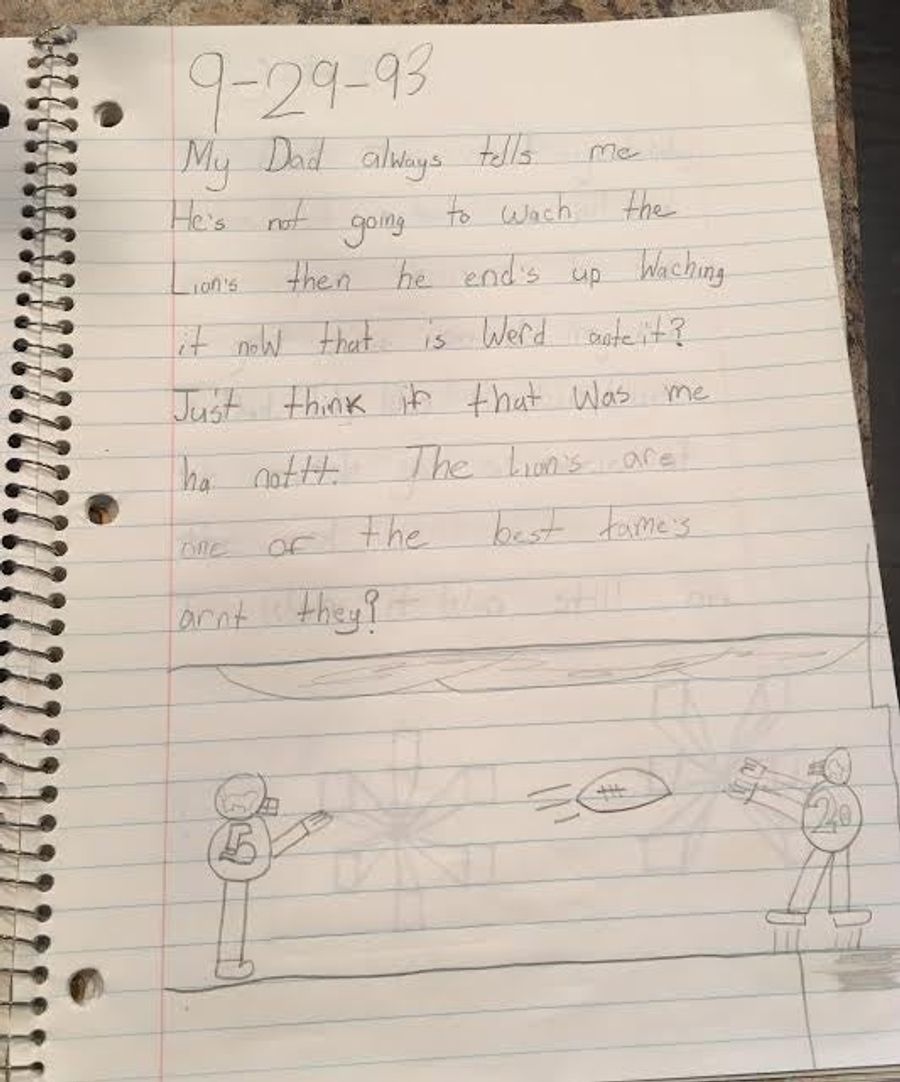 9-29-93
My Dad always tells me
He's not going to wach the
Lion's then he end's up Waching
it now that is Werd aateit?
Just think if that Was me
ha nottt. The Lion's are
one of the best tame's
arnt they?
5
20